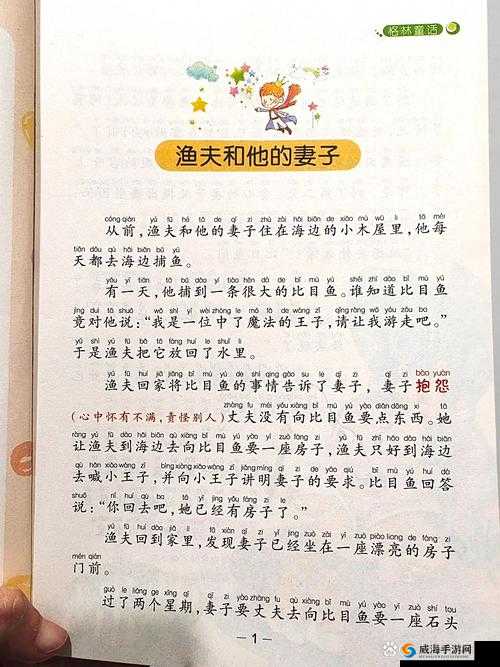 格林童话
渔夫和他的妻子
从前，渔夫和他的妻子住在海边的小木屋里，他每
天都去海边捕鱼。
有一天，他捕到一条很大的比目鱼。谁知道比目鱼
竟对他说：“我是一位中了魔法的王子，请让我游走吧。”
于是渔夫把它放回了水里。
渔夫回家将比目鱼的事情告诉了妻子，妻子抱怨
（心中怀有不满，责怪别人）丈夫没有向比目鱼要点东西。她
让渔夫到海边去向比目鱼要一座房子，渔夫只好到海边
去喊小王子，并向小王子讲明妻子的要求。比目鱼回答
说：“你回去吧，她已经有房子了。”
渔夫回到家里，发现妻子已经坐在一座漂亮的房子
门前。
过了两个星期，妻子要丈夫去向比目鱼要一座石头
1
威海手游网